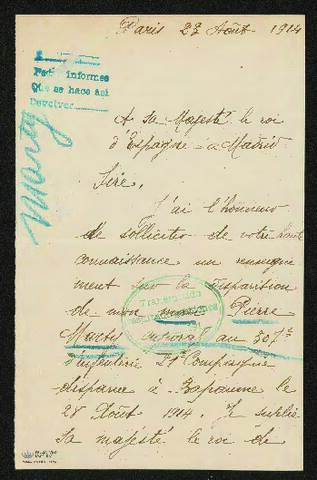 Paris 22 Août 1914
Pedir informes
Que se hace así
Devolver
Marty
A Sa Majesté le roi
d'Espagne - a Madrid
Sire,
J'ai l'honneur
de solliciter de votre haute
connaissance un renseigne
ment sur la disparition
de mon Pierre
Martes au 307e
d'infanterie 21e Compagnie
disparue à Bapaume le
28 Août 1914. Je supplie
Sa majesté le roi de